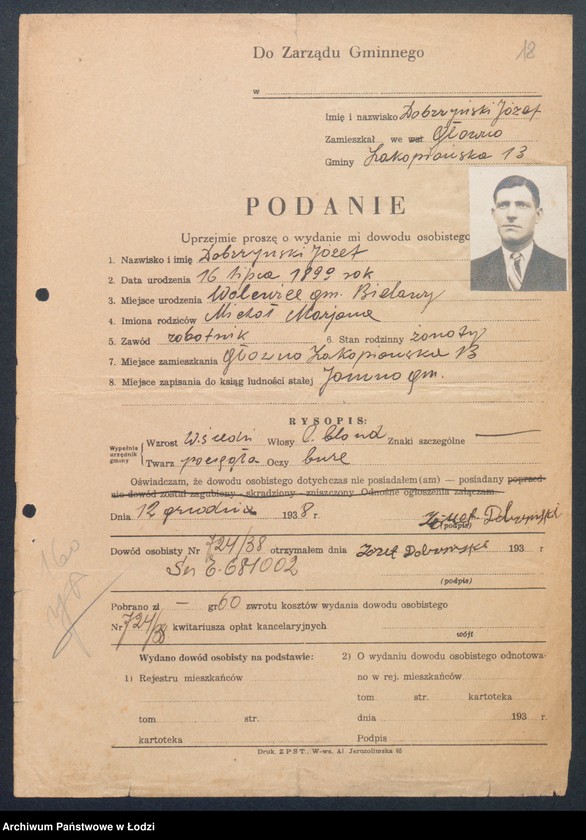 Do Zarządu Gminnego
18
w
Imię i nazwisko Dobrzyński Józef
Zamieszkał we wsi Głowno
Gminy Zakopiańska 13
PODANIE
Uprzejmie proszę o wydanie mi dowodu osobistego
1. Nazwisko i imię Dobrzyński Józef
2. Data urodzenia 16 lipca 1899 rok
3. Miejsce urodzenia Walewice gm. Bielawy
4. Imiona rodziców Michał Marjana
5. Zawód robotnik 6. Stan rodzinny żonaty
7. Miejsce zamieszkania Głowno Zakopiańska 13
8. Miejsce zapisania do ksiąg ludności stałej gm.
RYSOPIS:
Wypełnia urzędnik gminy
Wzrost W. średni Włosy C. blond Znaki szczególne —
Twarz pociągła Oczy bure
Oświadczam, że dowodu osobistego dotychczas nie posiadałem(am) — posiadany poprzed-
nio dowód został zagubiony - skradziony - zniszczony. Odnośne ogłoszenia załączam.
Dnia 12 grudnia 1938 r. Józef Dobrzyński
(podpis)
Dowód osobisty Nr 724/38 otrzymałem dnia Józef 193 r
Ser E. 681002
(podpis)
Pobrano zł — gr 60 zwrotu kosztów wydania dowodu osobistego
Nr 724/38 kwitariusza opłat kancelaryjnych
wójt
Wydano dowód osobisty na podstawie:
1) Rejestru mieszkańców
tom str.
kartoteka
2) O wydaniu dowodu osobistego odnotowa-
no w rej. mieszkańców
tom str. kartoteka
dnia 193 r.
Podpis
Druk. ZPST., W-wa, Al Jerozolimska 85
160
Archiwum Państwowe w Łodzi